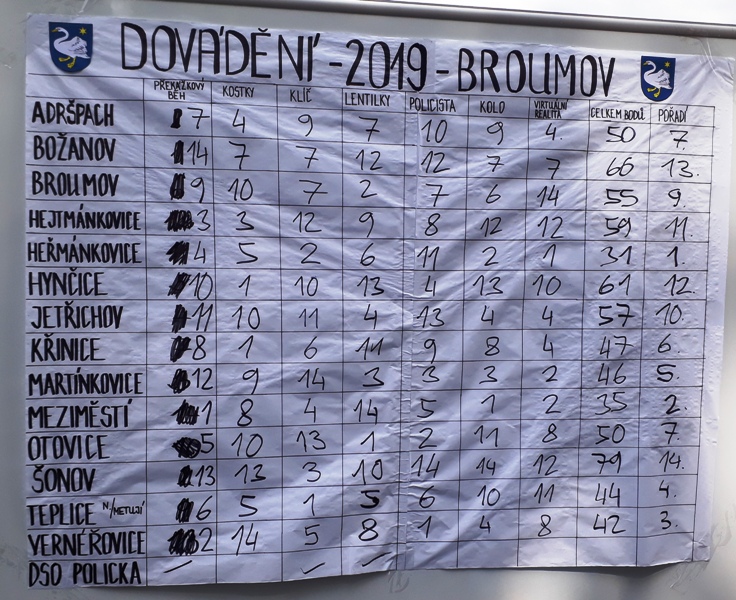 DOVÁDĚNÍ - 2019 - BROUMOV
PŘEKÁŽKOVÝ BĚH KOSTKY KLÍČ LENTILKY POLICISTA KOLO VIRTUÁLNÍ REALITA CELKEM BODŮ POŘADÍ
ADRŠPACH 7 4 9 7 10 9 4. 50 7.
BOŽANOV 14 7 7 12 12 7 7 66 13.
BROUMOV 9 10 7 2 7 6 14 55 9.
HEJTMÁNKOVICE 3 3 12 9 8 12 12 59 11.
HEŘMÁNKOVICE 4 5 2 6 11 2 1 31 1.
HYNČICE 10 1 10 13 4 13 10 61 12.
JETŘICHOV 11 10 11 4 13 4 4 57 10.
KŘINICE 8 1 6 11 9 8 4 47 6.
MARTÍNKOVICE 12 9 14 3 3 3 2 46 5.
MEZIMĚSTÍ 1 8 4 14 5 1 2 35 2.
OTOVICE 5 10 13 1 2 11 8 50 7.
ŠONOV 13 13 3 10 14 14 12 79 14.
TEPLICE N./METUJÍ 6 5 1 5 6 10 11 44 4.
VERNÉŘOVICE 2 14 5 8 1 4 8 42 3.
DSO POLICKA — — —